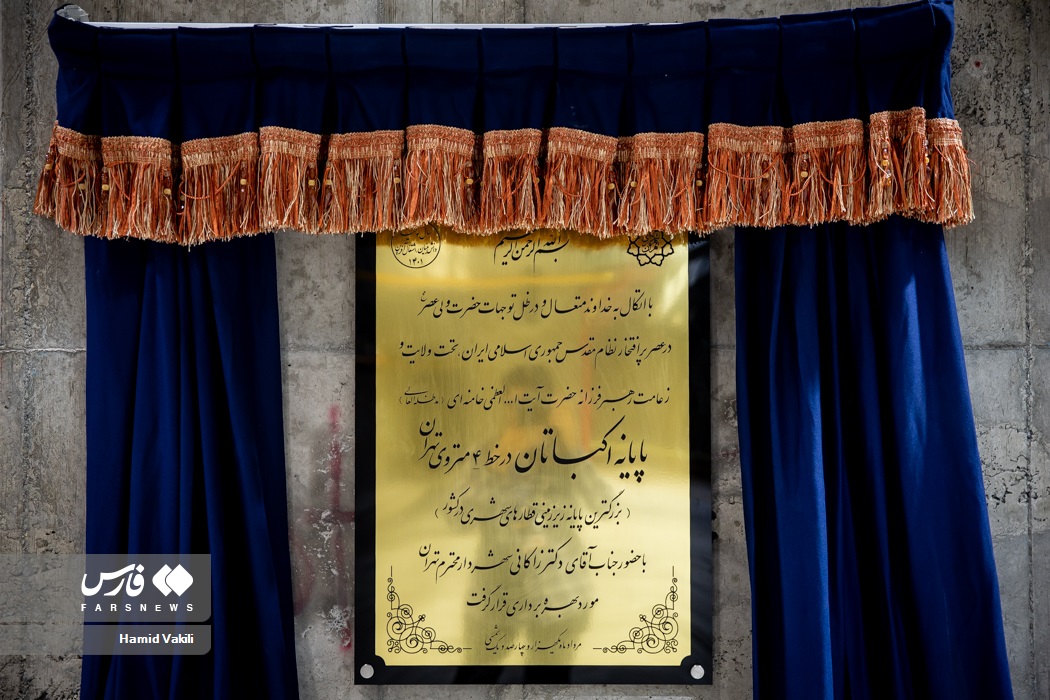 بسم الله الرحمن الرحیم
۱۴۰۱
با اتکال به خداوند متعال و در ظل توجهات حضرت ولی عصر
در عصر پرافتخار نظام مقدس جمهوری اسلامی ایران، تحت ولایت و
زعامت رهبر فرزانه حضرت آیت ا... العظمی خامنه ای (مدظله العالی)
پایانه اکباتان در خط ۴ متروی تهران
(بزرگترین پایانه زیرزمینی قطارهای شهری در کشور)
با حضور جناب آقای دکتر زاکانی شهردار محترم تهران
مورد بهره برداری قرار گرفت
مرداد ماه یکهزار و چهارصد و یک شمسی
فارس
FARSNEWS
Hamid Vakili